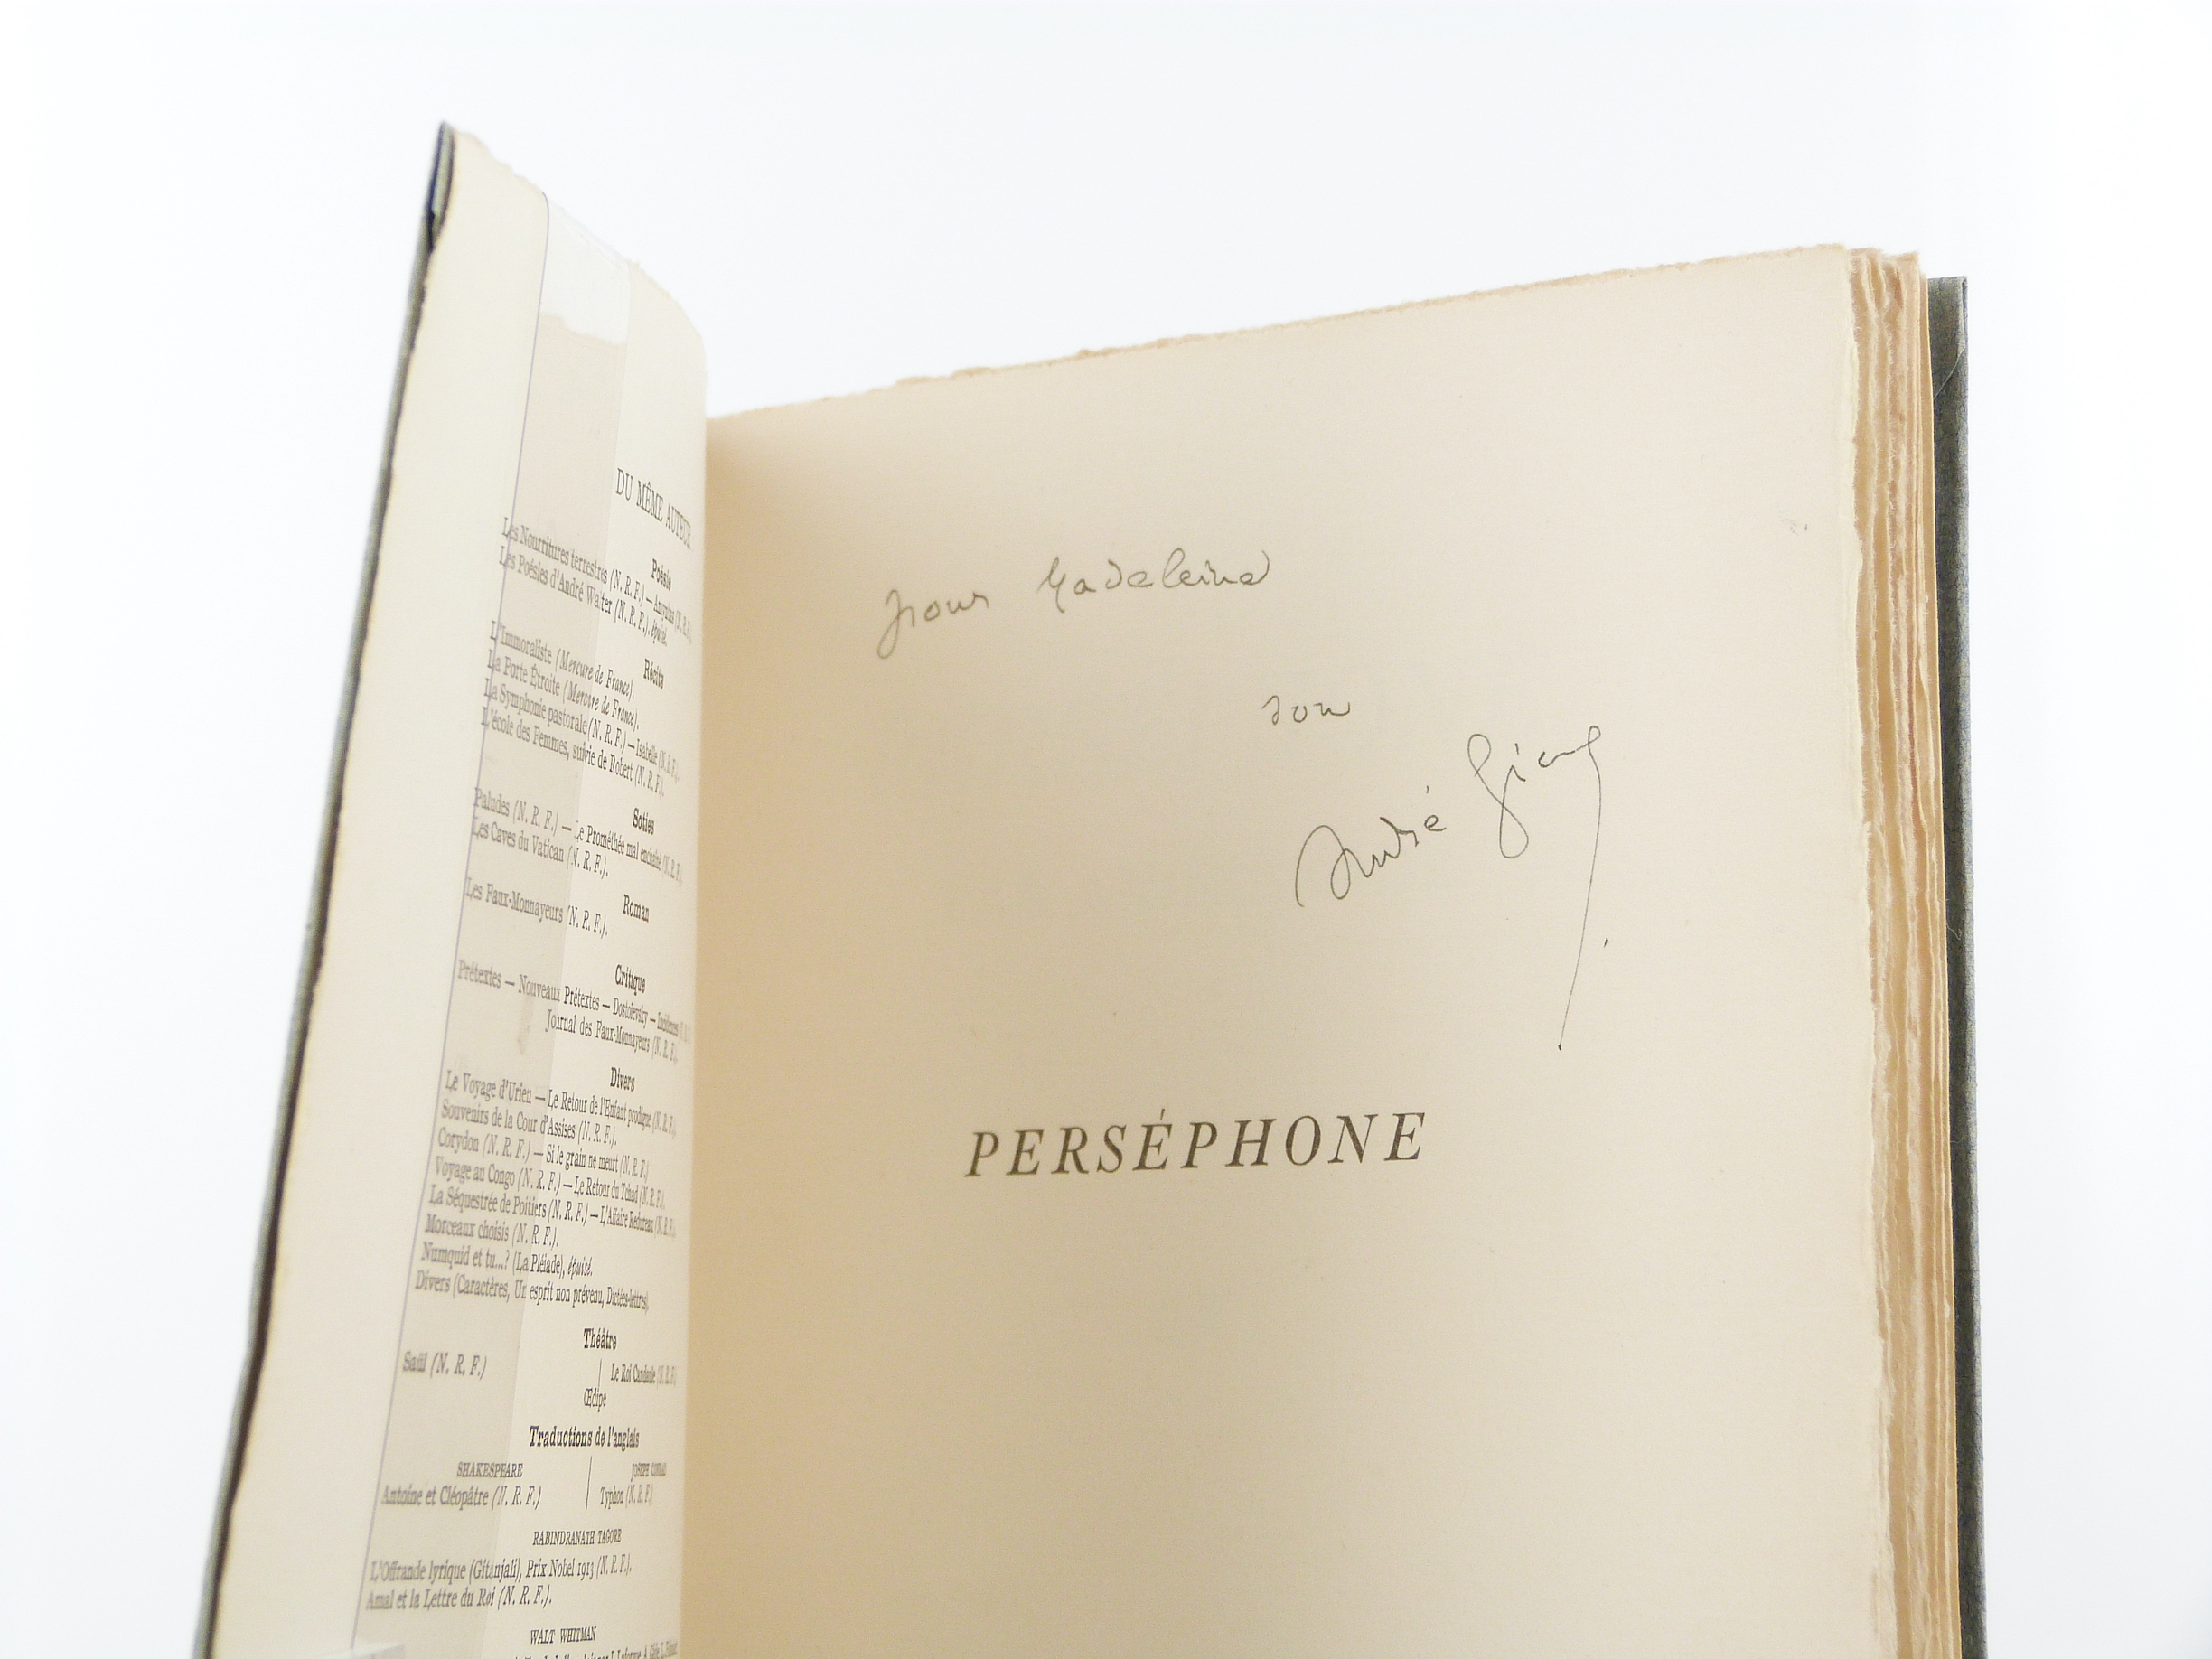 DU MÊME AUTEUR
Poésie
Les Nourritures terrestres (N. R. F.) — Amyntas (N. R. F.)
Les Poésies d'André Walter (N. R. F.), épuisé.
Récits
L'Immoraliste (Mercure de France).
La Porte Étroite (Mercure de France).
La Symphonie pastorale (N. R. F.) — Isabelle (N. R. F.).
L'école des Femmes, suivie de Robert (N. R. F.).
Soties
Paludes (N. R. F.) — Le Prométhée mal enchaîné (N. R. F.).
Les Caves du Vatican (N. R. F.).
Roman
Les Faux-Monnayeurs (N. R. F.).
Critique
Prétextes — Nouveaux Prétextes — Dostoïevsky — Incidences
Journal des Faux-Monnayeurs (N. R. F.).
Divers
Le Voyage d'Urien — Le Retour de l'Enfant prodigue (N. R. F.).
Souvenirs de la Cour d'Assises (N. R. F.).
Corydon (N. R. F.) — Si le grain ne meurt (N. R. F.)
Voyage au Congo (N. R. F.) — Le Retour du Tchad (N. R. F.).
La Séquestrée de Poitiers (N. R. F.) — L'Affaire Redureau (N. R. F.).
Morceaux choisis (N. R. F.).
Numquid et tu...? (La Pléiade), épuisé.
Divers (Caractères, Un esprit non prévenu, Dictées-lettres).
Théâtre
Saül (N. R. F.) Le Roi Candaule (N. R. F.)
Œdipe
Traductions de l'anglais
SHAKESPEARE JOSEPH CONRAD
Antoine et Cléopâtre (N. R. F.) Typhon (N. R. F.)
RABINDRANATH TAGORE
L'Offrande lyrique (Gitanjali), Prix Nobel 1913 (N. R. F.).
Amal et la Lettre du Roi (N. R. F.).
WALT WHITMAN
pour Madeleine
son
André Gide
PERSÉPHONE